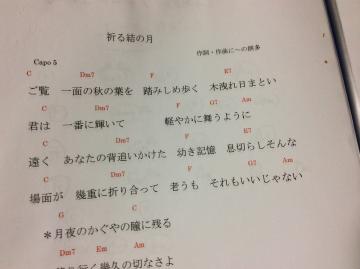 祈る結の月
作詞・作曲にへの
Capo 5
C Dm7 F E7
ご覧 一面の秋の葉を 踏みしめ歩く 木洩れ日まとい
C Dm7 F G7 Am
君は 一番に輝いて 軽やかに舞うように
C Dm7 F E7
遠く あなたの背追いかけた 幼き記憶 息切らしそんな
C Dm7 F G7 Am
場面が 幾重に折り合って 老うも それもいいじゃない
G C
*月夜のかぐやの瞳に残る
Dm7 Em Am
行く幾久の切なさよ